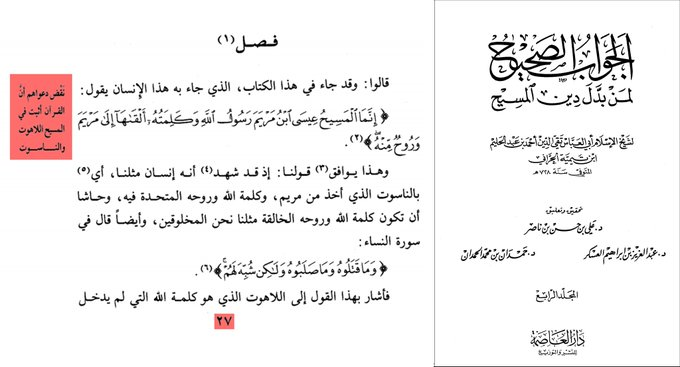 فصل (١)
نقض دعواهم أن
القرآن أثبت في
المسيح اللاهوت
والناسوت
قالوا: وقد جاء في هذا الكتاب، الذي جاء به هذا الإنسان يقول:
﴿إِنَّمَا ٱلْمَسِيحُ عِيسَى ٱبْنُ مَرْيَمَ رَسُولُ ٱللَّهِ وَكَلِمَتُهُۥٓ أَلْقَىٰهَآ إِلَىٰ مَرْيَمَ
وَرُوحٌ مِّنْهُ﴾(٢).
وهذا يوافق(٣) قولنا: إذ قد شهد(٤) أنه إنسان مثلنا، أي(٥)
بالناسوت الذي أخذ من مريم، وكلمة الله وروحه المتحدة فيه، وحاشا
أن تكون كلمة الله وروحه الخالقة مثلنا نحن المخلوقين، وأيضاً قال في
سورة النساء:
﴿وَمَا قَتَلُوهُ وَمَا صَلَبُوهُ وَلَٰكِن شُبِّهَ لَهُمْ﴾(٦).
فأشار بهذا القول إلى اللاهوت الذي هو كلمة الله التي لم يدخل
٢٧
الجواب الصحيح
لمن بدل دين المسيح
لشيخ الإسلام أبي العباس تقي الدين أحمد بن عبد الحليم
ابن تيمية الحراني
المتوفى سنة ٧٢٨ هـ
تحقيق وتعليق
د. علي بن حسن بن ناصر
د. عبد العزيز بن إبراهيم العسكر د. حمدان بن محمد الحمدان
المجلد الرابع
دار العاصمة
للنشر والتوزيع